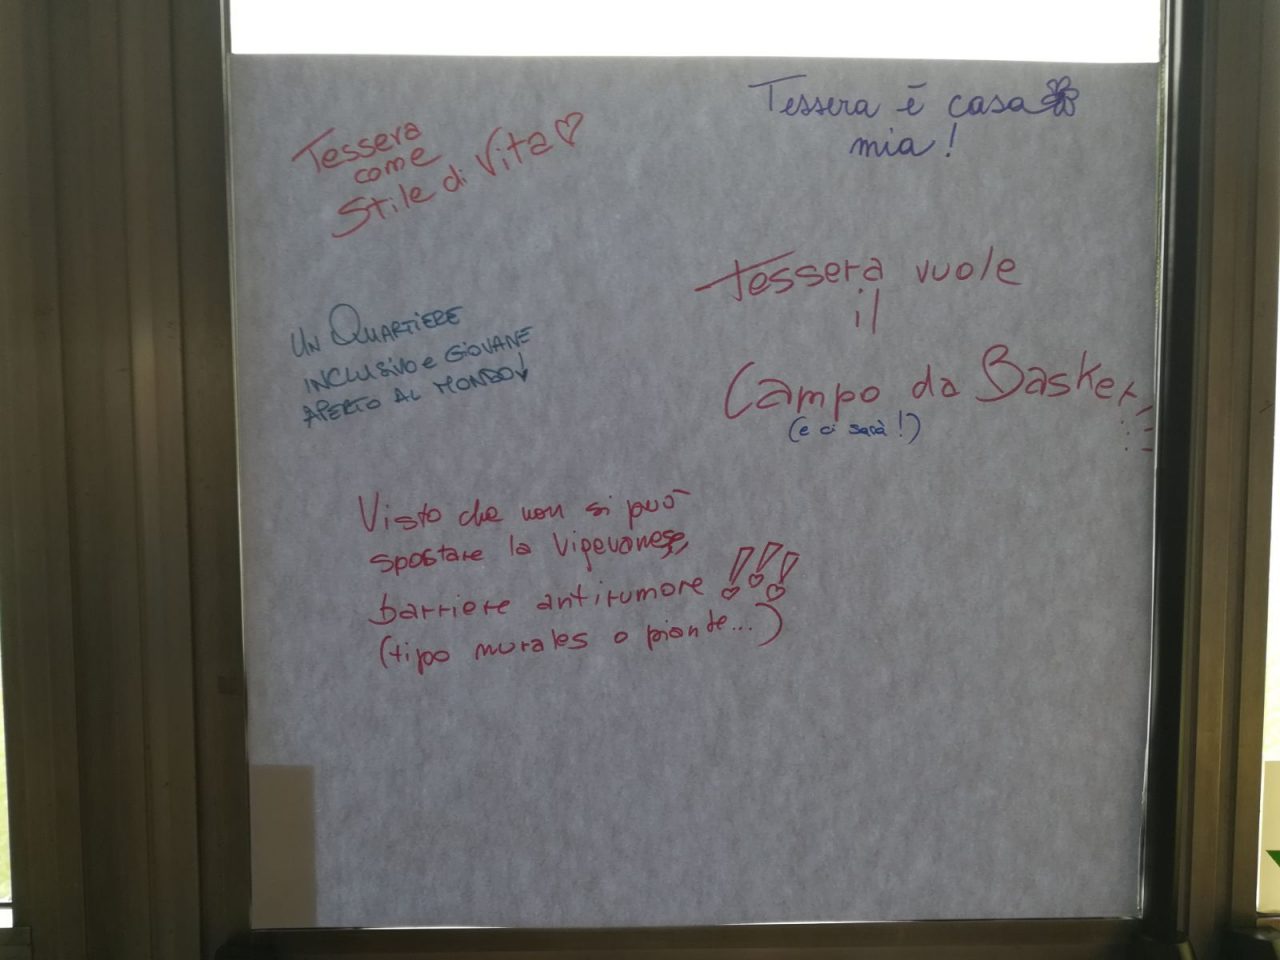 Tessera
come
Stile di Vita
Tessera è casa
mia!
UN QUARTIERE
INCLUSIVO e GIOVANE
APERTO AL MONDO!
Tessera vuole
il
Campo da Basket
(e ci sarà!)
Visto che non si può
spostare la Vigevanese,
barriere antirumore !!!
(tipo murales o piante...)